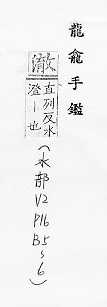 龍龕手鑑
澈
直列反水
澄｜也
(水部V2P16B5~6)